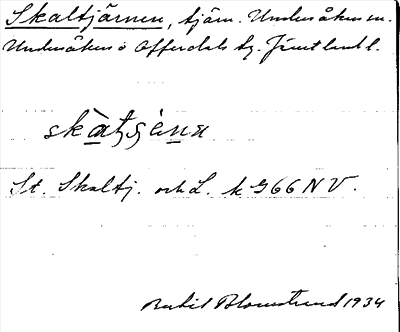 Skaltjärnen, tjärn. Undersåkers sn.
Undersåkers o Offerdals tg. Jämtlands l.
skàtʂèna
St. Skaltj. och L. k G66 NV.
Bertil Blomstrand 1934